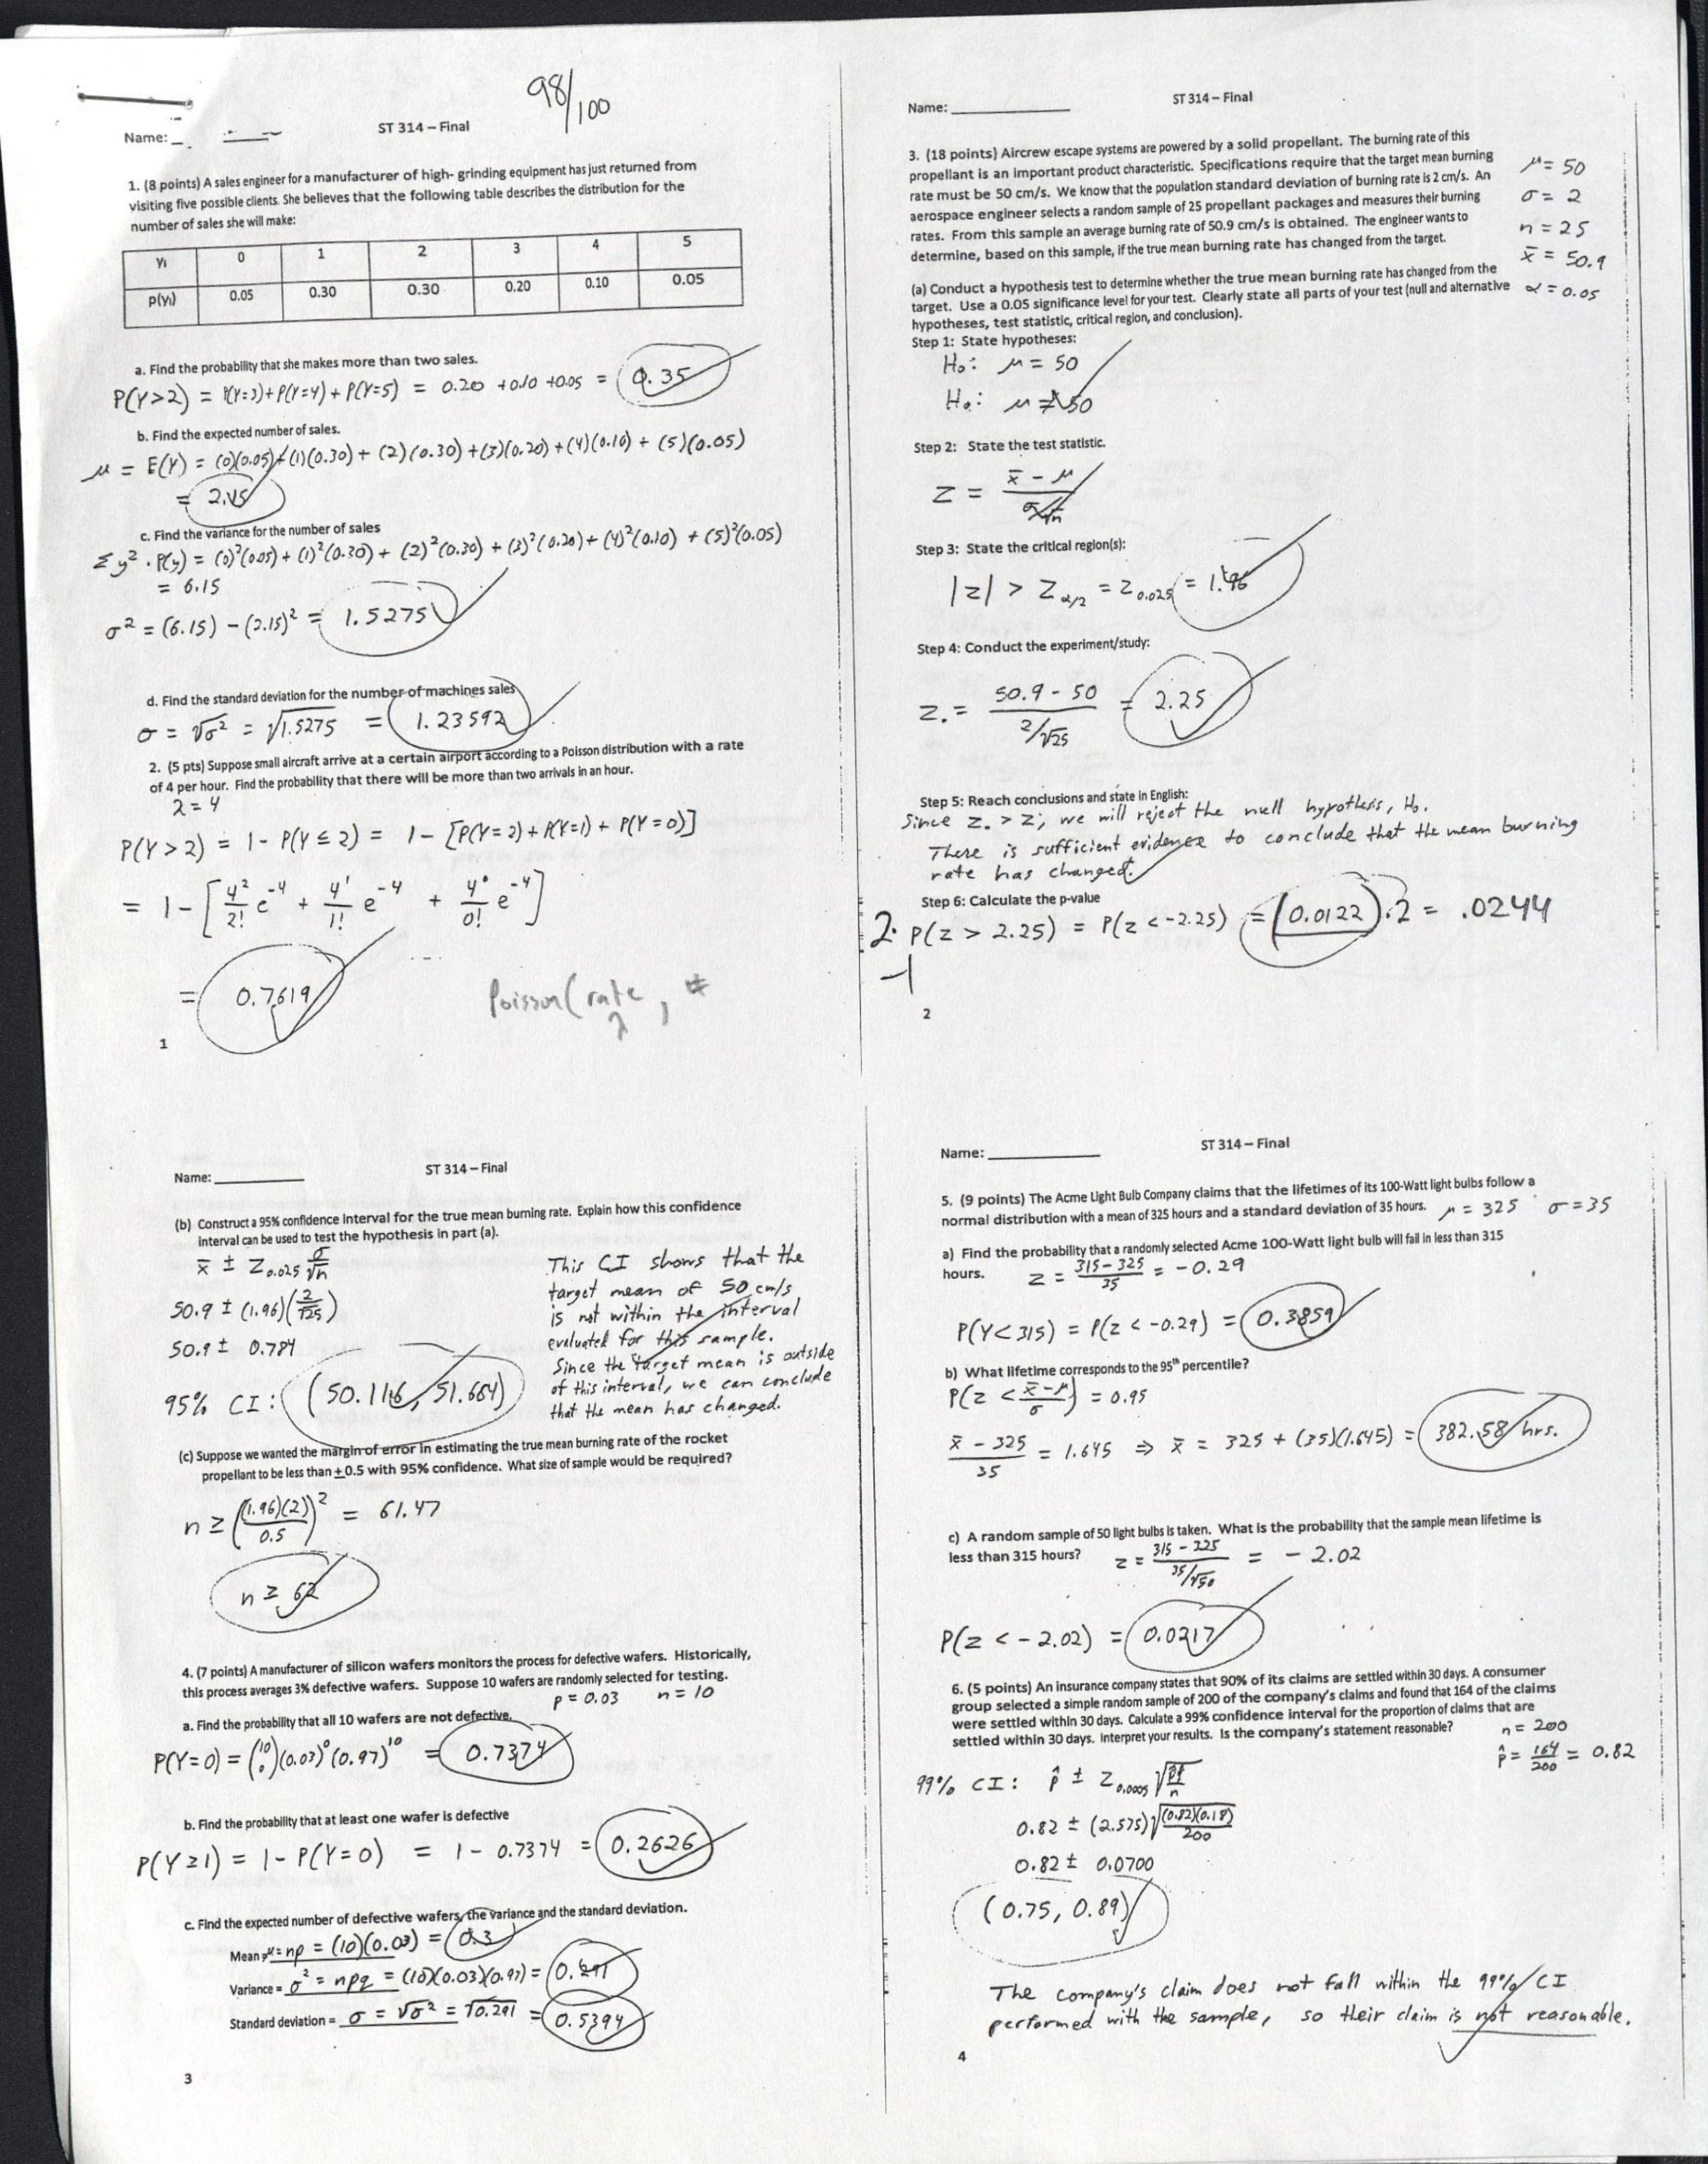 98/100
Name: _
ST 314 – Final
1. (8 points) A sales engineer for a manufacturer of high- grinding equipment has just returned from
visiting five possible clients. She believes that the following table describes the distribution for the
number of sales she will make:
yᵢ 0 1 2 3 4 5
p(yᵢ) 0.05 0.30 0.30 0.20 0.10 0.05
a. Find the probability that she makes more than two sales.
P(Y>2) = P(Y=3)+P(Y=4)+P(Y=5) = 0.20 +0.10 +0.05 = 0.35
b. Find the expected number of sales.
μ = E(Y) = (0)(0.05)+(1)(0.30)+(2)(0.30)+(3)(0.20)+(4)(0.10)+(5)(0.05)
= 2.15
c. Find the variance for the number of sales
Σy²·P(y) = (0)²(0.05)+(1)²(0.30)+(2)²(0.30)+(3)²(0.20)+(4)²(0.10)+(5)²(0.05)
= 6.15
σ² = (6.15) – (2.15)² = 1.5275
d. Find the standard deviation for the number of machines sales
σ = √σ² = √1.5275 = 1.23592
2. (5 pts) Suppose small aircraft arrive at a certain airport according to a Poisson distribution with a rate
of 4 per hour. Find the probability that there will be more than two arrivals in an hour.
λ = 4
P(Y>2) = 1 - P(Y≤2) = 1 - [P(Y=2)+P(Y=1)+P(Y=0)]
= 1 - [4²/2! e⁻⁴ + 4¹/1! e⁻⁴ + 4⁰/0! e⁻⁴]
= 0.7619
Poisson(rate, #
λ
1
Name:
ST 314 – Final
3. (18 points) Aircrew escape systems are powered by a solid propellant. The burning rate of this
propellant is an important product characteristic. Specifications require that the target mean burning
rate must be 50 cm/s. We know that the population standard deviation of burning rate is 2 cm/s. An
aerospace engineer selects a random sample of 25 propellant packages and measures their burning
rates. From this sample an average burning rate of 50.9 cm/s is obtained. The engineer wants to
determine, based on this sample, if the true mean burning rate has changed from the target.
μ = 50
σ = 2
n = 25
x̄ = 50.9
α = 0.05
(a) Conduct a hypothesis test to determine whether the true mean burning rate has changed from the
target. Use a 0.05 significance level for your test. Clearly state all parts of your test (null and alternative
hypotheses, test statistic, critical region, and conclusion).
Step 1: State hypotheses:
H₀: μ = 50
Hₐ: μ ≠ 50
Step 2: State the test statistic.
z = (x̄ - μ)/(σ/√n)
Step 3: State the critical region(s):
|z| > z α/2 = z 0.025 = 1.96
Step 4: Conduct the experiment/study:
z₀ = (50.9 - 50)/(2/√25) = 2.25
Step 5: Reach conclusions and state in English:
Since z₀ > z, we will reject the null hypothesis, H₀.
There is sufficient evidence to conclude that the mean burning
rate has changed.
Step 6: Calculate the p-value
2· P(z > 2.25) = P(z < -2.25) = (0.0122)·2 = .0244
-1
2
Name:
ST 314 – Final
(b) Construct a 95% confidence interval for the true mean burning rate. Explain how this confidence
interval can be used to test the hypothesis in part (a).
x̄ ± z 0.025 σ/√n
50.9 ± (1.96)(2/√25)
50.9 ± 0.784
95% CI: (50.116, 51.684)
This CI shows that the
target mean of 50 cm/s
is not within the interval
evaluated for this sample.
Since the target mean is outside
of this interval, we can conclude
that the mean has changed.
(c) Suppose we wanted the margin of error in estimating the true mean burning rate of the rocket
propellant to be less than ±0.5 with 95% confidence. What size of sample would be required?
n ≥ ((1.96)(2)/0.5)² = 61.47
n ≥ 62
4. (7 points) A manufacturer of silicon wafers monitors the process for defective wafers. Historically,
this process averages 3% defective wafers. Suppose 10 wafers are randomly selected for testing.
p = 0.03 n = 10
a. Find the probability that all 10 wafers are not defective.
P(Y=0) = (10 0)(0.03)⁰(0.97)¹⁰ = 0.7374
b. Find the probability that at least one wafer is defective
P(Y≥1) = 1 - P(Y=0) = 1 - 0.7374 = 0.2626
c. Find the expected number of defective wafers, the variance and the standard deviation.
Mean = μ = np = (10)(0.03) = 0.3
Variance = σ² = npq = (10)(0.03)(0.97) = 0.291
Standard deviation = σ = √σ² = √0.291 = 0.5394
3
Name:
ST 314 – Final
5. (9 points) The Acme Light Bulb Company claims that the lifetimes of its 100-Watt light bulbs follow a
normal distribution with a mean of 325 hours and a standard deviation of 35 hours. μ = 325 σ = 35
a) Find the probability that a randomly selected Acme 100-Watt light bulb will fail in less than 315
hours. z = (315-325)/35 = -0.29
P(Y<315) = P(z < -0.29) = 0.3859
b) What lifetime corresponds to the 95th percentile?
P(z < (x̄-μ)/σ) = 0.95
(x̄ - 325)/35 = 1.645 ⇒ x̄ = 325 + (35)(1.645) = 382.58 hrs.
c) A random sample of 50 light bulbs is taken. What is the probability that the sample mean lifetime is
less than 315 hours? z = (315 - 325)/(35/√50) = - 2.02
P(z < - 2.02) = 0.0217
6. (5 points) An insurance company states that 90% of its claims are settled within 30 days. A consumer
group selected a simple random sample of 200 of the company's claims and found that 164 of the claims
were settled within 30 days. Calculate a 99% confidence interval for the proportion of claims that are
settled within 30 days. Interpret your results. Is the company's statement reasonable?
n = 200
p̂ = 164/200 = 0.82
99% CI: p̂ ± z 0.0005 √(p̂q̂/n)
0.82 ± (2.575)√((0.82)(0.18)/200)
0.82 ± 0.0700
(0.75, 0.89)
The company's claim does not fall within the 99% CI
performed with the sample, so their claim is not reasonable.
4